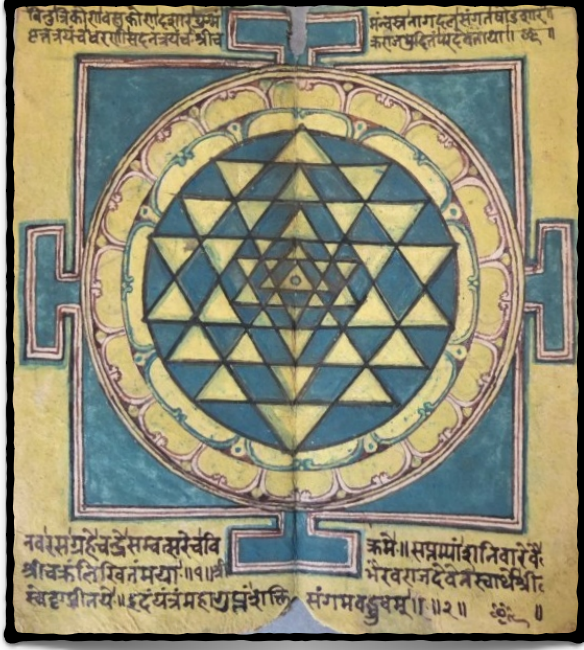 बिंदुत्रिकोणवसुकोणदशारयुग्मं मन्वस्रनागदलसंगतषोडशारं
वृत्तत्रयं च धरणीसदनत्रयं च श्रीच क्रराजमुदितं परदेवतायाः ॥
नवरसग्रहेचंद्रेसम्वत्सरेचवि क्रमे॥सप्तम्यांशनिवारेवै
श्रीचक्रंलिखितंमया॥१॥श्री भैरवराजदेवेनस्वार्थंश्री
प्रीतये॥इदंयंत्रंमहागुप्तंशक्ति संगमवद्ध्रुवम्॥॥२॥